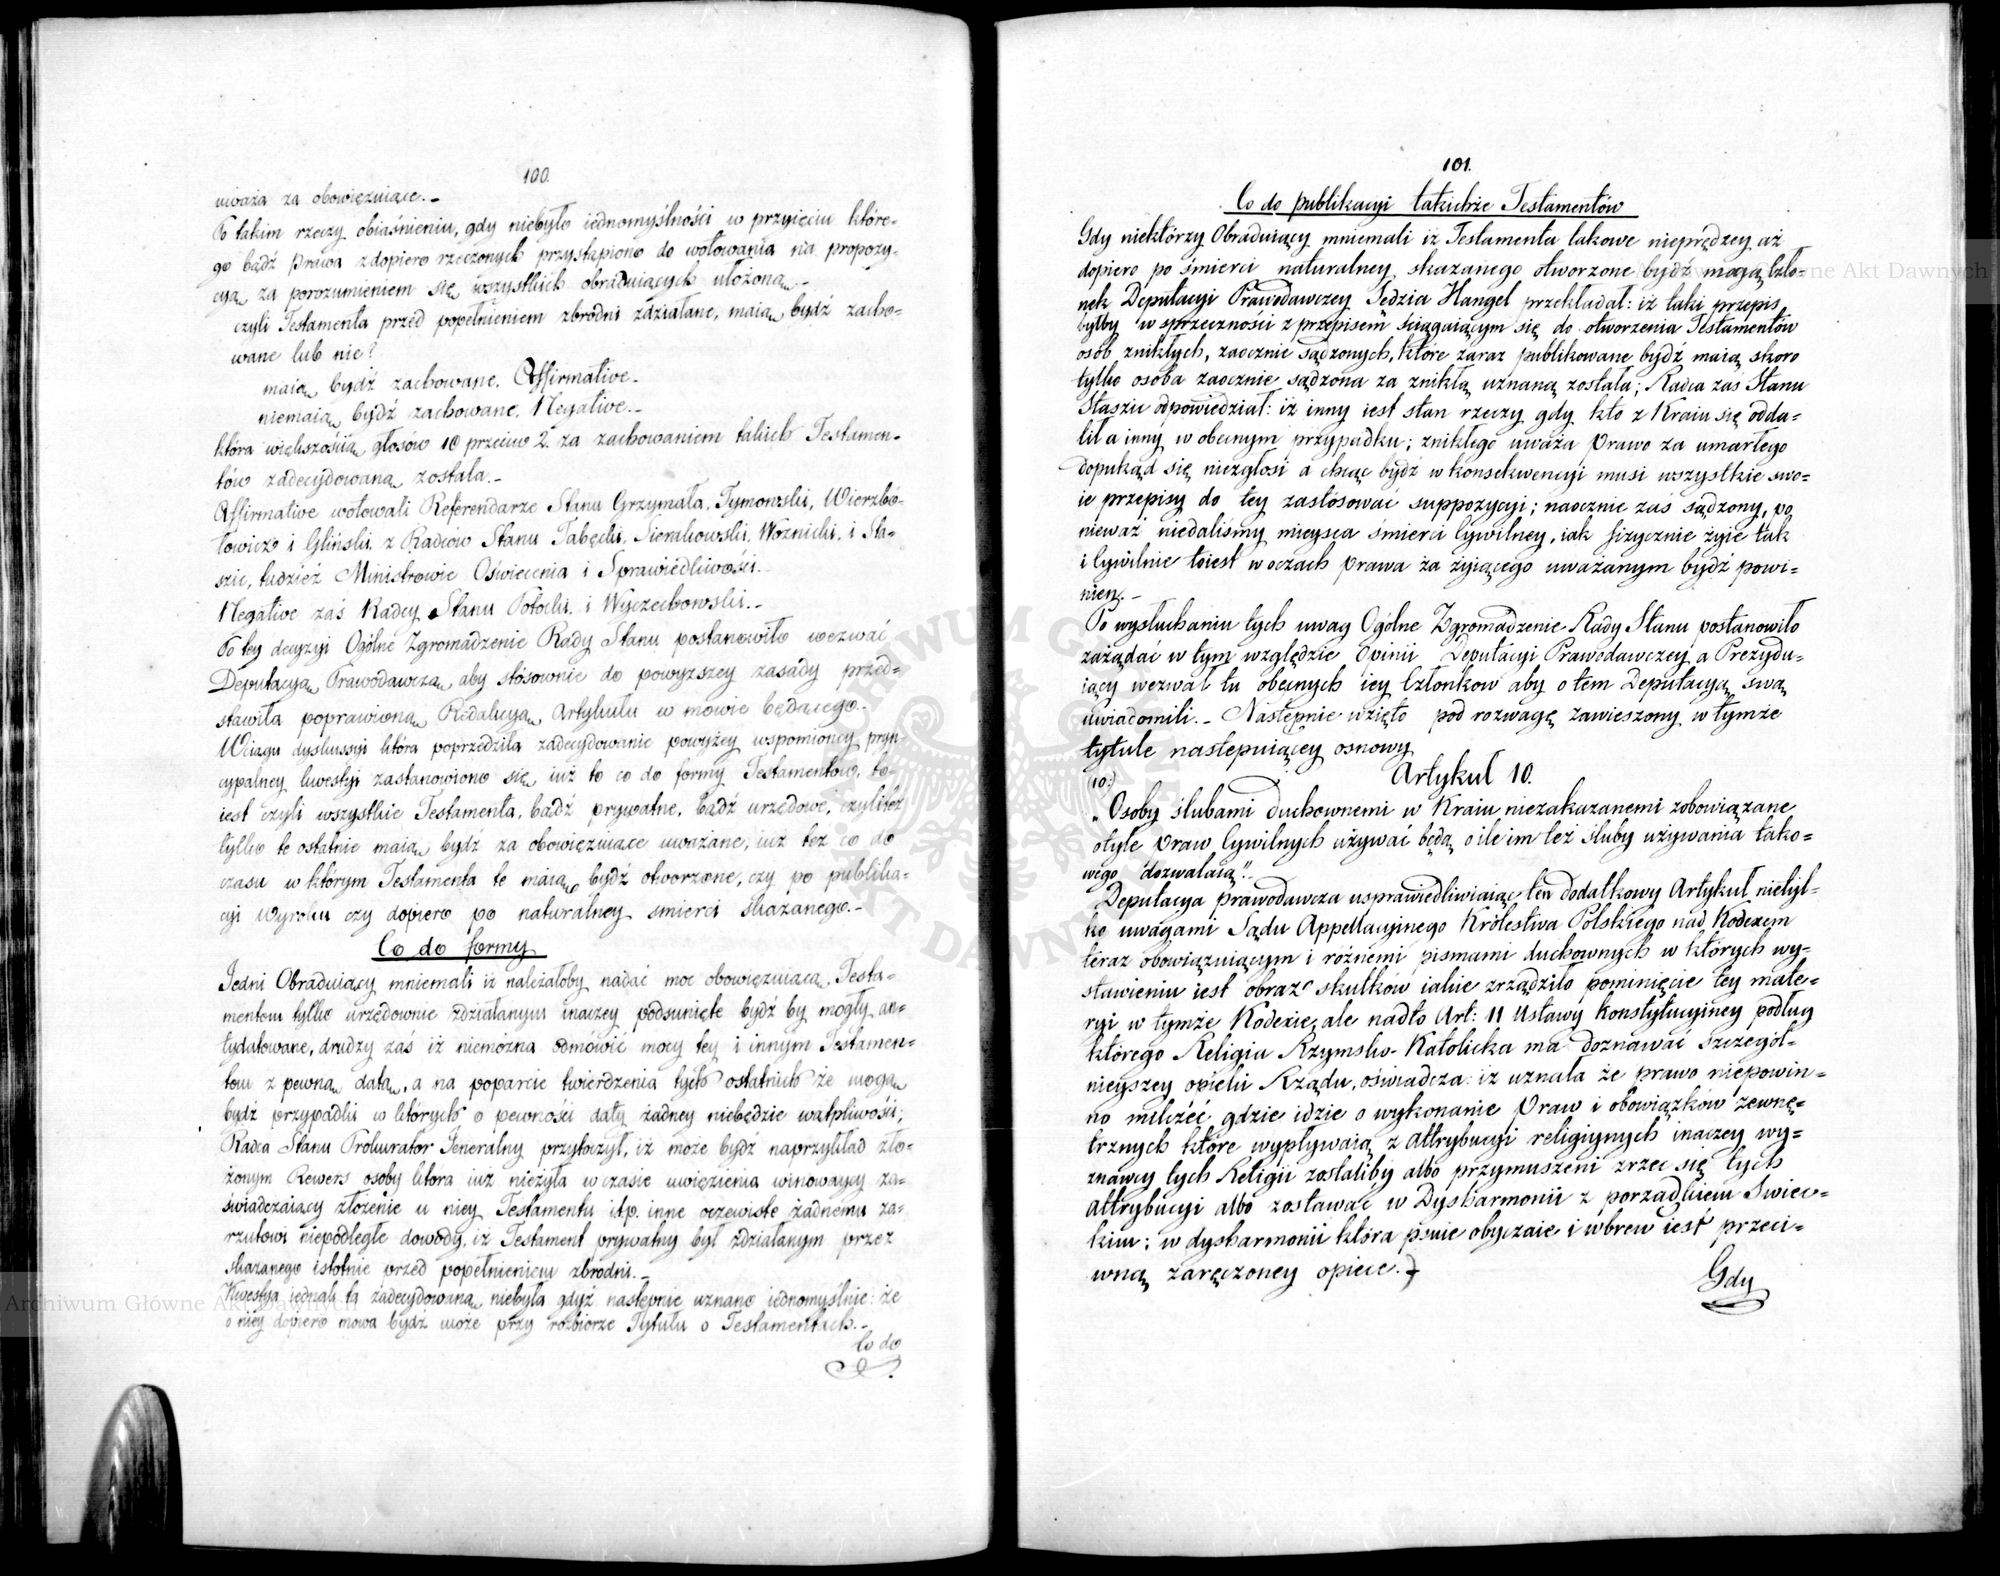 100.
uważa za obowięzuiące._
Po takim rzeczy obiaśnieniu, gdy niebyło iednomyślności w przyięciu które-
go bądź Prawa zdopiero rzeczonych przystąpiono do wotowania na propozy-
cyą za porozumieniem się wszystkich obraduiących ułożoną._
czyli Testamenta przed popełnieniem zbrodni zdziałane, maią bydź zacho-
wane lub nie?
maią bydź zachowane. Affirmative._
niemaią bydź zachowane. Negative._
która większością głosów 10 przeciw 2. za zachowaniem takich Testamen-
tów zadecydowaną została._
Affirmative wotowali Referendarze Stanu Grzymała, Tymowski, Wierzbo-
łowicz i Gliński, z Radców Stanu Tabęcki, Sierakowski, Woźnicki, i Sta-
szic, tudzież Ministrowie Oświecenia i Sprawiedliwości._
Negative zaś Radcy Stanu Potocki i Wyczechowski._
Po tey decyzyi Ogólne Zgromadzenie Rady Stanu postanowiło wezwać
Deputacyą Prawodawczą aby stósownie do powyższey zasady przed-
stawiła poprawioną Redakcyą Artykułu w mowie będącego._
W ciągu dyskussyi która poprzedziła zadecydowanie powyżey wspomioney pryn-
cypalney kwestyi zastanowiono się iuż to co do formy Testamentow, to-
iest czyli wszystkie Testamenta, bądź prywatne, bądź urzędowe, czyliteż
tylko te ostatnie maią bydź za obowięzuiące uważane, iuż też co do
czasu w którym Testamenta te maią bydź otworzone, czy po publika-
cyi Wyroku czy dopiero po naturalney smierci skazanego._
Co do formy
Jedni Obraduiący mniemali iż należałoby nadać moc obowięzuiącą Testa-
mentom tylko urzędownie zdziałanym inaczey podsunięte bydź by mogły an-
tydatowane, drudzy zaś iż niemożna odmówić mocy tey i innym Testamen-
tom z pewną datą, a na poparcie twierdzenia tych ostatnich że mogą
bydź przypadki w których o pewności daty żadney niebędzie wątpliwości;
Radca Stanu Prokurator Generalny przytoczył, iż może bydź naprzykład zło-
żonym Rewers osoby która iuż nieżyła w czasie uwięzienia winowaycy za-
świadczaiący złożenie u niey Testamentu itp. inne oczewiste żadnemu za-
rzutowi niepodległe dowody, iż Testament prywatny był zdziałanym przez
skazanego istotnie przed popełnieniem zbrodni._
Kwestya iednak ta zadecydowaną niebyła gdyż następnie uznano iednomyślnie: że
o niey dopiero mowa bydź może przy rozbiorze Tytułu o Testamentach._
Co do
101.
Co do publikacyi takichże Testamentów
Gdy niektórzy Obraduiący mniemali iż Testamenta takowe nieprędzey aż
dopiero po śmierci naturalney skazanego otworzone bydź mogą Czło-
nek Deputacyi Prawodawczey Sędzia Hangel przekładał: iż taki przepis
byłby w sprzeczności z przepisem sciągaiącym się do otworzenia Testamentów
osób znikłych, zaocznie sądzonych, które zaraz publikowane bydź maią skoro
tylko osoba zaocznie sądzona za znikłą uznaną została; Radca zaś Stanu
Staszic odpowiedział: iż inny iest stan rzeczy gdy kto z Kraiu się odda-
lił a inny w obecnym przypadku; znikłego uważa Prawo za umarłego
dopukąd się niezgłosi a chcąc bydź w konsekwencyi musi wszystkie swo-
ie przepisy do tey zastósować suppozycyi; naocznie zaś sądzony, po
nieważ niedaliśmy mieysca śmierci Cywilney, iak fizycznie żyie tak
i Cywilnie toiest w oczach Prawa za żyiącego uważanym bydź powi-
nien._
Po wysłuchaniu tych uwag Ogólne Zgromadzenie Rady Stanu postanowiło
zażądać w tym względzie Opinii Deputacyi Prawodawczey a Prezydu-
iący wezwał tu obecnych iey Członków aby o tem Deputacyą swą
uwiadomili._ Następnie wzięto pod rozwagę zawieszony w tymże
tytule następuiącey osnowy
Artykuł 10.
(10.)
„Osoby ślubami duchownemi w Kraiu niezakazanemi zobowiązane
otyle Praw Cywilnych używać będą o ile im też śluby używania tako-
wego dozwalaią"._
Deputacya Prawodawcza usprawiedliwiaiąc ten dodatkowy Artykuł nietyl-
ko uwagami Sądu Appellacyinego Królestwa Polskiego nad Kodexem
teraz obowiązuiącym i różnemi pismami duchownych w których wy-
stawieniu iest obraz skutków iakie zrządziło pominięcie tey mate-
ryi w tymże Kodexie, ale nadto Art: 11 Ustawy Konstytucyiney podług
którego Religia Rzymsko-Katolicka ma doznawać szczegól-
nieyszey opieki Rządu, oświadcza: iż uznała że prawo niepowin-
no milczéć gdzie idzie o wykonanie Praw i obowiązków zewnę-
trznych które wypływaią z attrybucyi religiynych inaczey wy-
znawcy tych Religii zostaliby albo przymuszeni zrzec się tych
attrybucyi albo zostawać w Dysharmonii z porządkiem Swiec-
kim; w dysharmonii która psuie obyczaie i wbrew iest przeci-
wną zaręczoney opiece._
Gdy
Archiwum Główne Akt Dawnych